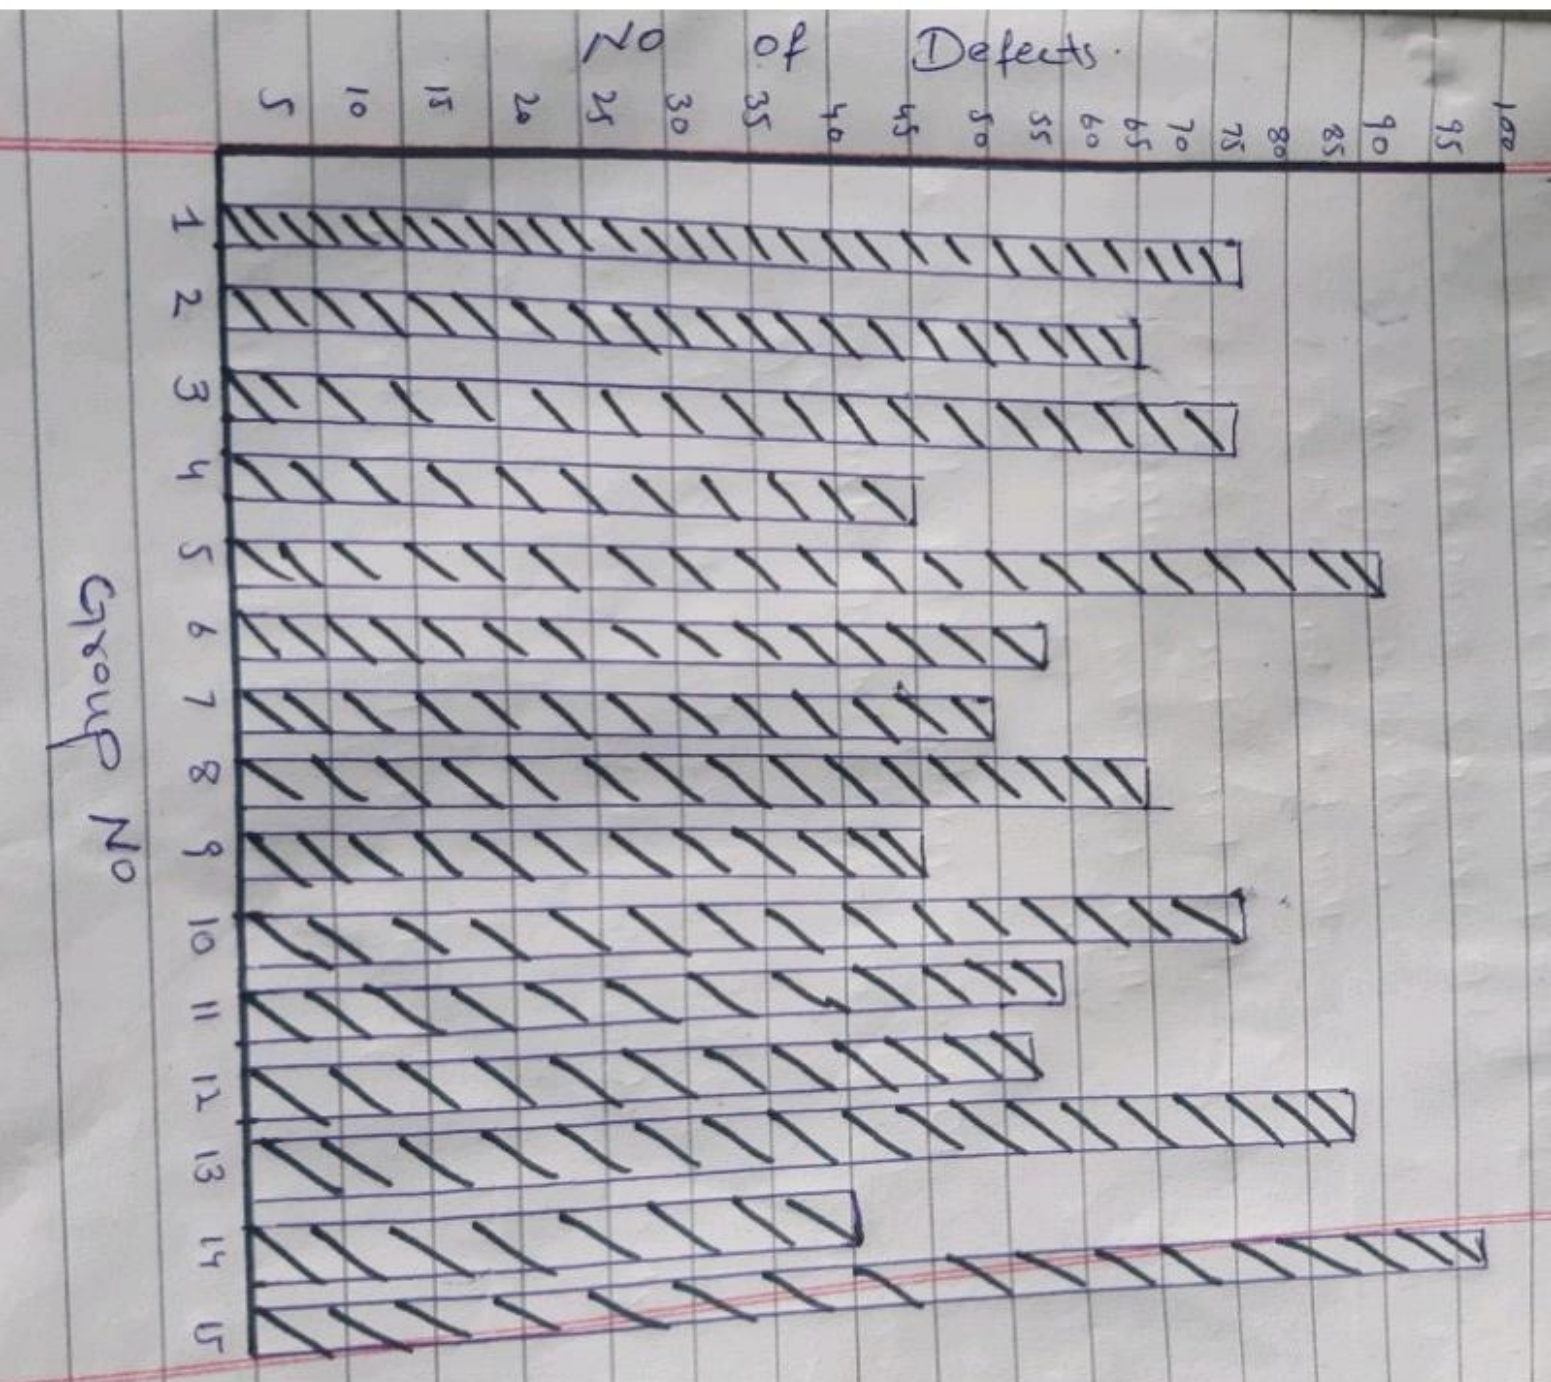 No of Defects.
5 10 15 20 25 30 35 40 45 50 55 60 65 70 75 80 85 90 95 100
1
2
3
4
5
6
7
8
9
10
11
12
13
14
15
Group No